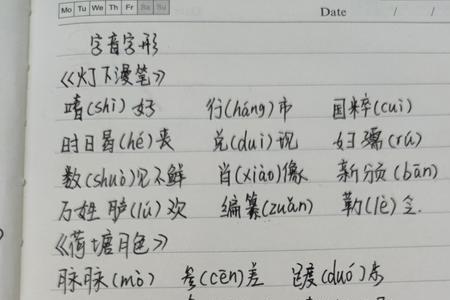 Mo Tu We Th Fr Sa Su Date / /
字音字形
《灯下漫笔》
嗜(shì)好 行(háng)市 国粹(cuì)
时日曷(hé)丧 兑(duì)现 妇孺(rú)
数(shuò)见不鲜 肖(xiào)像 新分负(bān)
万姓胪(lú)欢 编纂(zuǎn) 勒(lè)令.
《荷塘月色》
脉脉(mò) 参(cēn)差 踱(duó)步